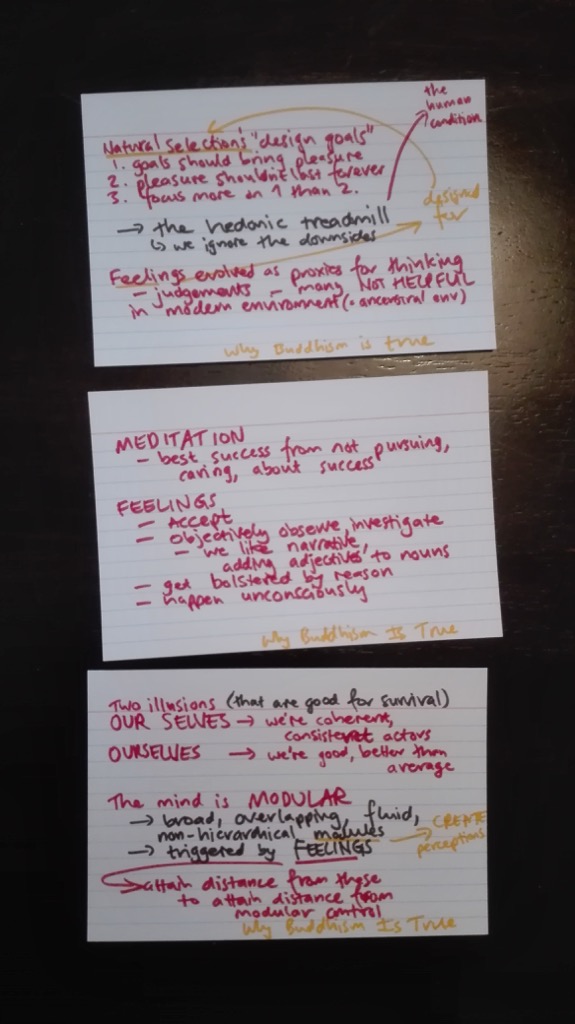 the
human
condition
Natural selection's "design goals"
1. goals should bring pleasure
2. pleasure shouldn't last forever
3. focus more on 1 than 2.
designed
for
→ the hedonic treadmill
↳ we ignore the downsides
Feelings evolved as proxies for thinking
- judgements - many NOT HELPFUL
in modern environment ( ancestral env)
Why Buddhism is true
MEDITATION
- best success from not pursuing,
caring, about success
FEELINGS
- Accept
- objectively observe, investigate
- we like narrative,
adding 'adjectives' to nouns
- get bolstered by reason
- happen unconsciously
Why Buddhism Is True
Two illusions (that are good for survival)
OUR SELVES → we're coherent,
consistent actors
OURSELVES → we're good, better than
average
The mind is MODULAR
→ broad, overlapping, fluid,
non-hierarchical modules → CREATE
perceptions
→ triggered by FEELINGS
→ attain distance from these
to attain distance from
modular control
Why Buddhism Is True